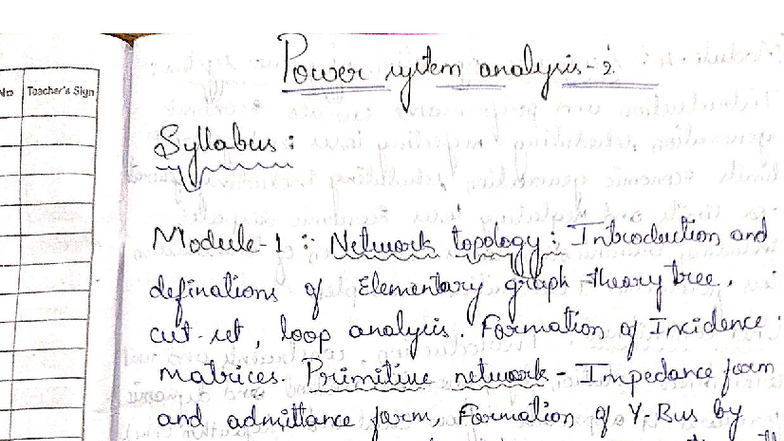 Power system analysis-2.
No Teacher's Sign
Syllabus :
Module-1 : Network topology : Introduction and
definations of Elementary graph theory tree,
cut-set, loop analysis. Formation of Incidence
matrices. Primitive network - Impedance form
and admittance form, Formation of Y-Bus by